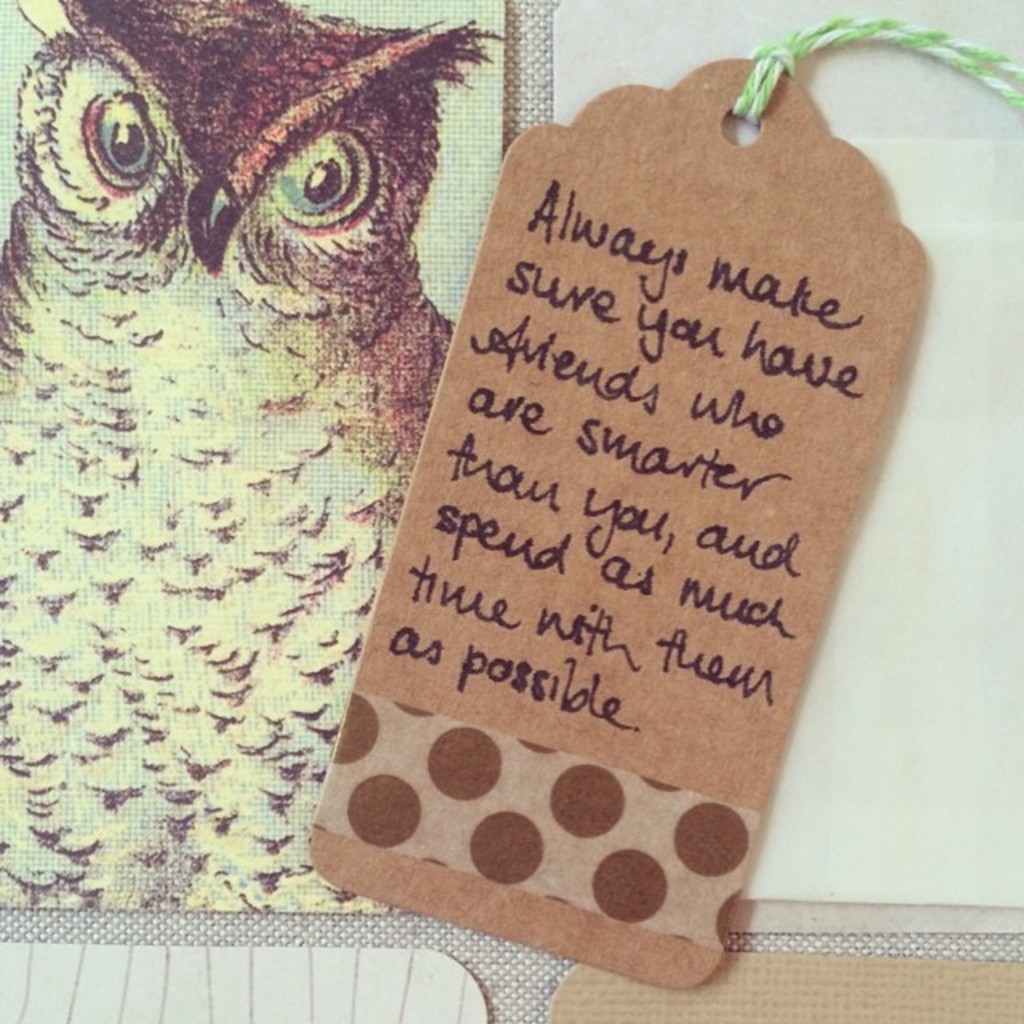 Always make
sure you have
friends who
are smarter
than you, and
spend as much
time with them
as possible.